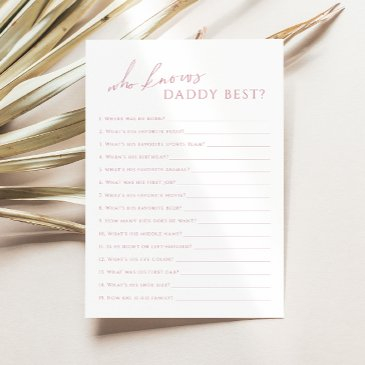 who knows
DADDY BEST?
1. WHERE WAS HE BORN?
2. WHAT'S HIS FAVORITE FOOD?
3. WHAT'S HIS FAVORITE SPORTS TEAM?
4. WHEN'S HIS BIRTHDAY?
5. WHAT'S HIS FAVORITE
6. WHAT WAS HIS FIRST JOB?
7. WHAT'S HIS FAVORITE MOVIE?
8. WHAT'S HIS FAVORITE BEER?
9. HOW MANY KIDS DOES HE WANT?
10. WHAT'S HIS MIDDLE NAME?
11. IS HE RIGHT OR LEFT-HANDED?
12. WHAT'S HIS EYE COLOR?
13. WHAT WAS HIS FIRST CAR?
14. WHAT'S HIS SHOE SIZE?
15. HOW BIG IS HIS FAMILY?